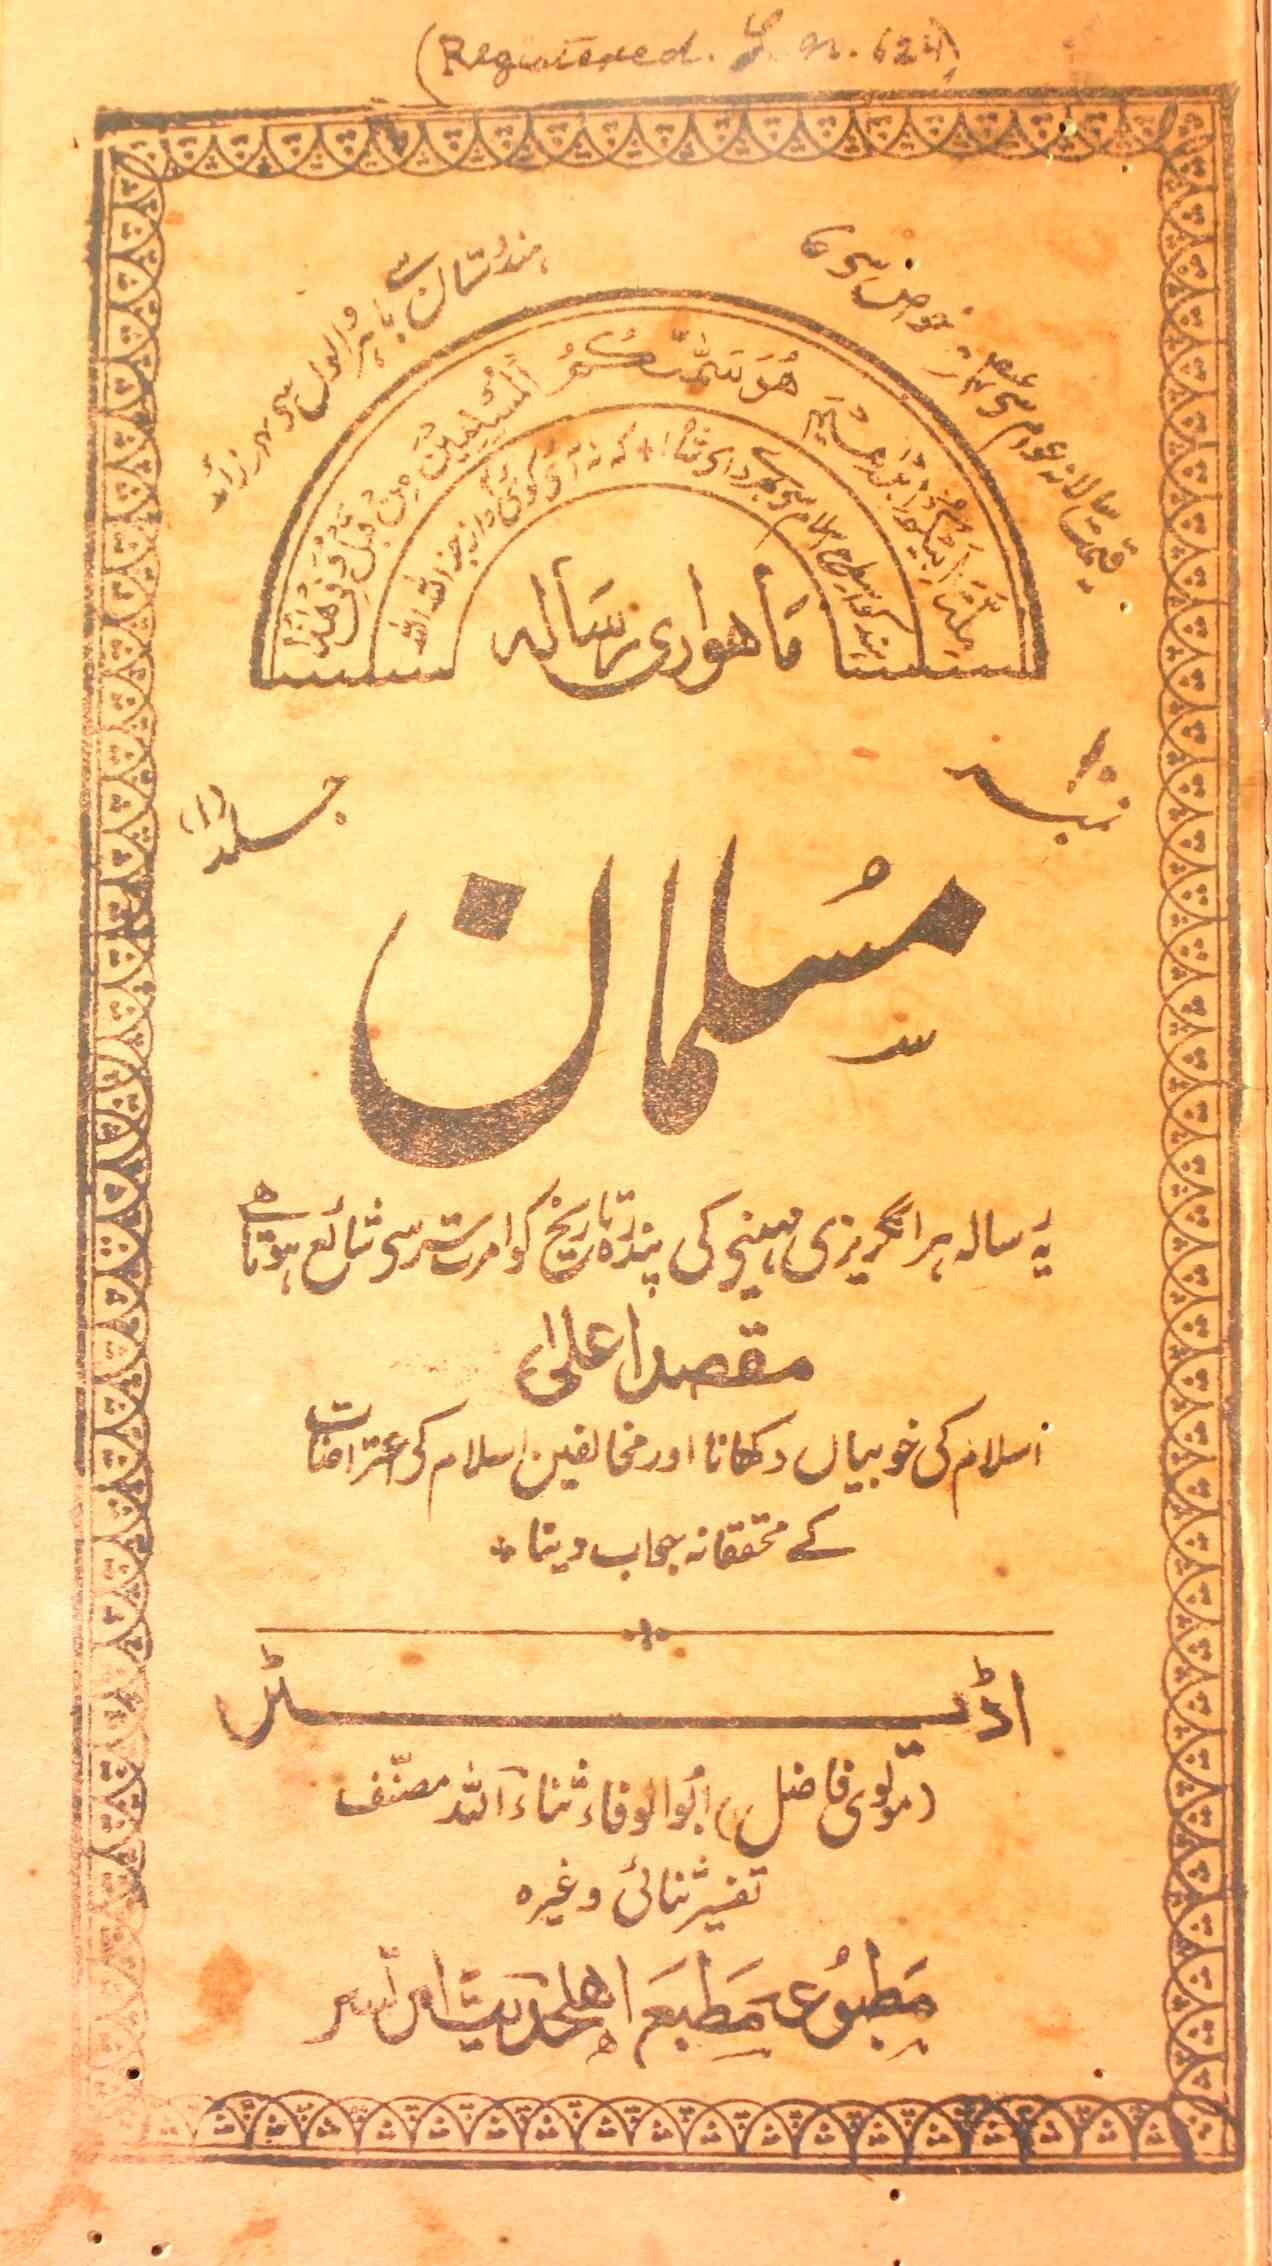 (Registered. L. N. 624)
قیمت سالانہ عوام سی خواص سی
ہندوستان سے باہر والوں سی زائد
مِلَّةَ اَبِيْكُمْ اِبْرٰهِيْمَ هُوَ سَمّٰكُمُ الْمُسْلِمِيْنَ مِنْ قَبْلُ وَفِیْ هٰذَا
اسلام سی
ماهواری رساله
نمبر
جلد (۱)
مُسلمان
یہ رسالہ ہر انگریزی مہینی کی پندرہ تاریخ کو امرتسر سی شائع ہوتا ہے
مقصد اعلیٰ
اسلام کی خوبیاں دکھانا اور مخالفین اسلام کی اعتراضات
کے محققانہ جواب دینا
اڈیٹر
(مولوی فاضل) ابُوالوفاء ثناء اللہ مصنّف
تفسیر ثنائی وغیرہ
مَطبُوعہ مَطبَع اہلحدیث امرتسر